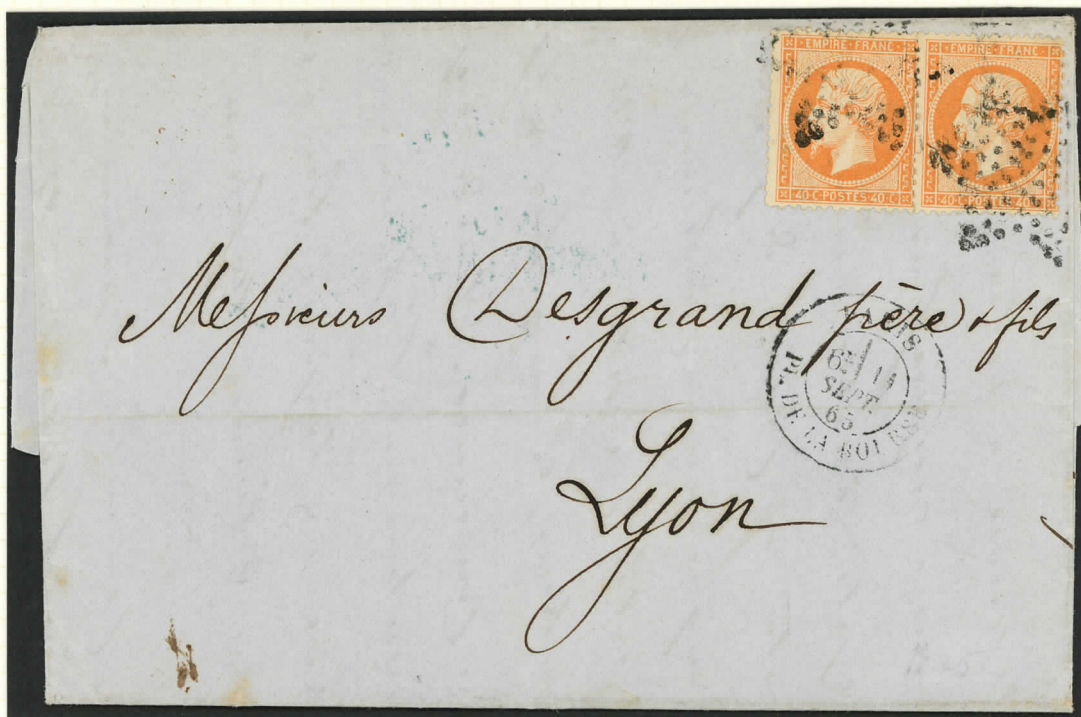 EMPIRE FRANC
40 C POSTES 40 C
EMPIRE FRANC
40 C POSTES 40 C
Messieurs Desgrand père & fils
Lyon
PARIS
6E 14
SEPT.
65
PL. DE LA BOURSE